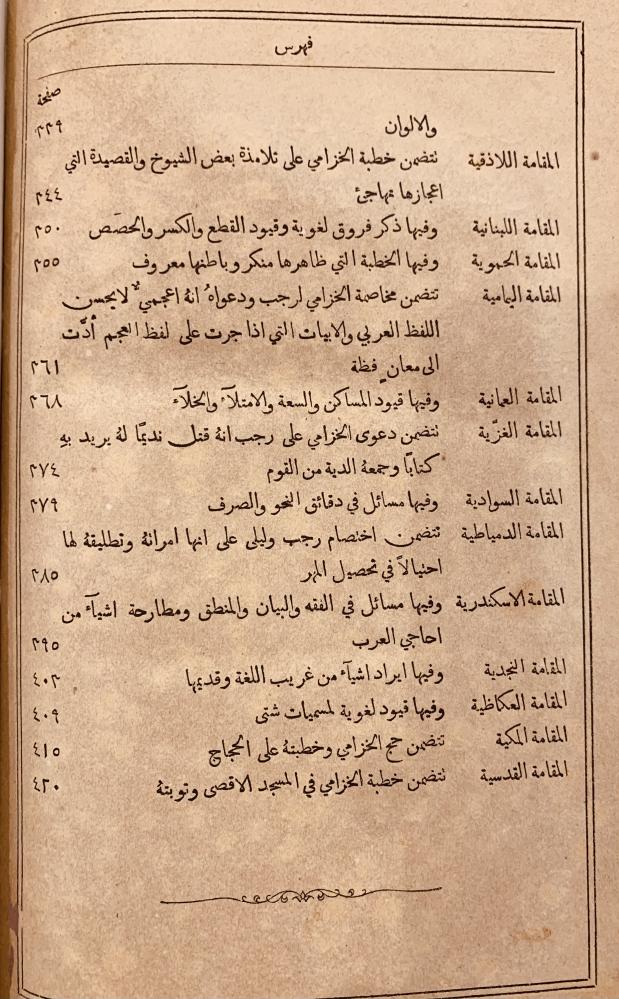 فهرس
صفحة
والالوان ٣٣٩
المقامة اللاذقية تتضمن خطبة الخزامي على تلامذة بعض الشيوخ والقصيدة التي
اعجازها تهاجئ ٣٤٤
المقامة اللبنانية وفيها ذكر فروق لغوية وقيود القطع والكسر والحصص ٣٥٠
المقامة الحموية وفيها الخطبة التي ظاهرها منكر وباطنها معروف ٣٥٥
المقامة اليمامية تتضمن مخاصمة الخزامي لرجب ودعواهُ انهُ اعجميٌّ لايحسن
اللفظ العربي والابيات التي اذا جرت على لفظ العجم أدَّت
الى معانٍ فظة ٣٦١
المقامة العمانية وفيها قيود المساكن والسعة والامتلآء والخلآء ٣٦٨
المقامة الغزّية تتضمن دعوى الخزامي على رجب انهُ قتل نديمًا لهُ يريد بهِ
كتابًا وجمعهُ الدية من القوم ٣٧٤
المقامة السوادية وفيها مسائل في دقائق النحو والصرف ٣٧٩
المقامة الدمياطية تتضمن اختصام رجب وليلى على انها امراتهُ وتطليقهُ لها
احتيالاً في تحصيل المهر ٣٨٥
المقامة الاسكندرية وفيها مسائل في الفقه والبيان والمنطق ومطارحة اشيآء من
احاجي العرب ٣٩٥
المقامة النجدية وفيها ايراد اشيآء من غريب اللغة وقديمها ٤٠٣
المقامة العكاظية وفيها قيود لغوية لمسميات شتى ٤٠٩
المقامة المكية تتضمن حج الخزامي وخطبتهُ على الحجاج ٤١٥
المقامة القدسية تتضمن خطبة الخزامي في المسجد الاقصى وتوبتهُ ٤٢٠